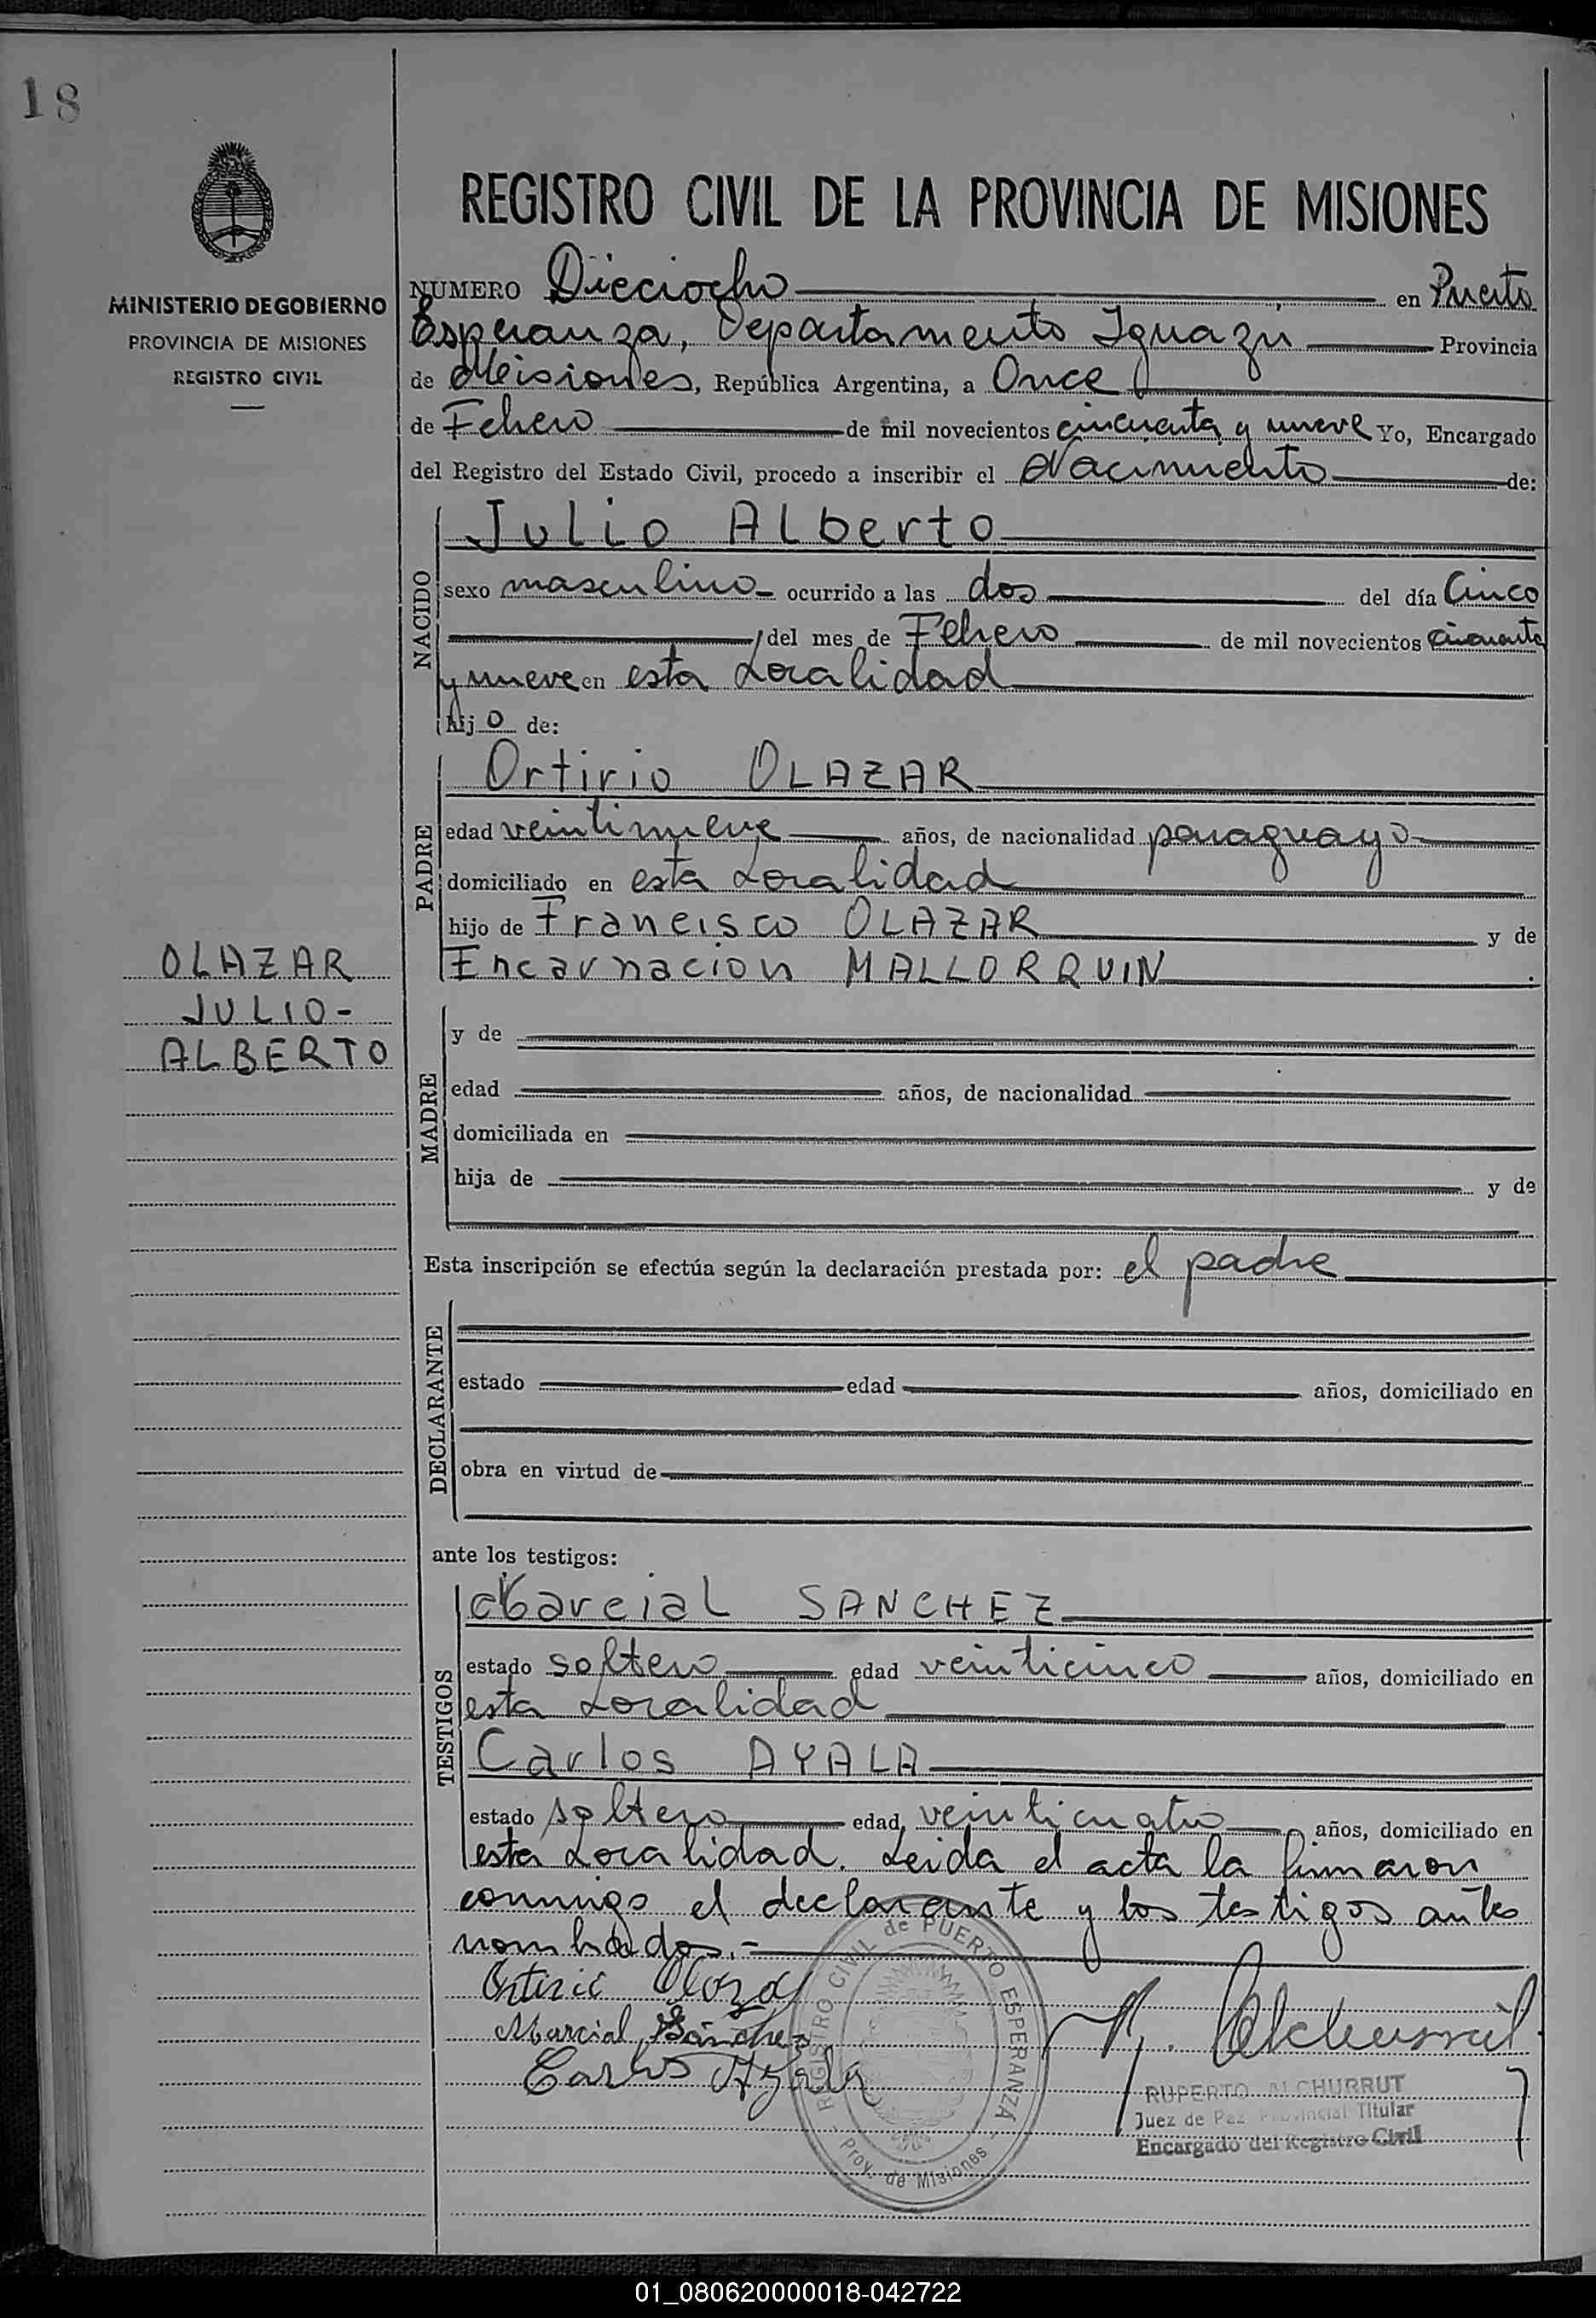 18
MINISTERIO DE GOBIERNO
PROVINCIA DE MISIONES
REGISTRO CIVIL
REGISTRO CIVIL DE LA PROVINCIA DE MISIONES
NUMERO Dieciocho en Puerto
Esperanza, Departamento Iguazu Provincia
de Misiones, República Argentina, a Once
de Febrero de mil novecientos cincuenta y nueve Yo, Encargado
del Registro del Estado Civil, procedo a inscribir el Nacimiento de:
NACIDO
Julio Alberto
sexo masculino - ocurrido a las dos del día Cinco
del mes de Febrero de mil novecientos cincuenta
y nueve en esta Localidad
hijo de:
PADRE
Ortirio OLAZAR
edad veintinueve años, de nacionalidad paraguayo
domiciliado en esta Localidad
hijo de Francisco OLAZAR y de
Encarnacion MALLORQUIN.
OLAZAR
JULIO-
ALBERTO
MADRE
y de
edad años, de nacionalidad
domiciliada en
hija de y de
Esta inscripción se efectúa según la declaración prestada por: el padre
DECLARANTE
estado edad años, domiciliado en
obra en virtud de
ante los testigos:
TESTIGOS
Marcial SANCHEZ
estado soltero edad veinticinco años, domiciliado en
esta Localidad
Carlos AYALA
estado soltero edad veinticuatro años, domiciliado en
esta Localidad. Leida el acta la firmaron
conmigo el declarante y los testigos antes
nombrados.-
Ortirio Olazar
Marcial Sánchez
Carlos Ayala
REGISTRO CIVIL de PUERTO ESPERANZA
Prov. de Misiones
R. Alchurrut
RUPERTO ALCHURRUT
Juez de Paz Provincial Titular
Encargado del Registro Civil
01_080620000018-042722